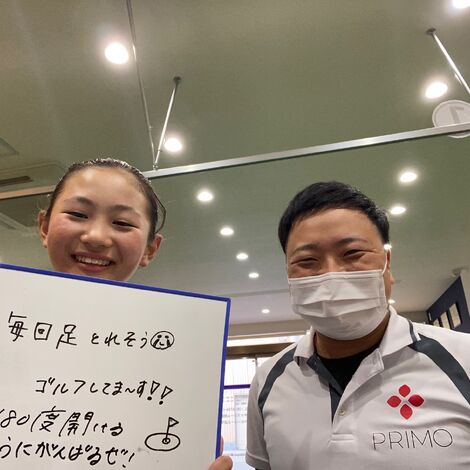 毎回足とれそう
ゴルフしてま〜す!!
180度開ける
うにがんばるぜ!
PRIMO